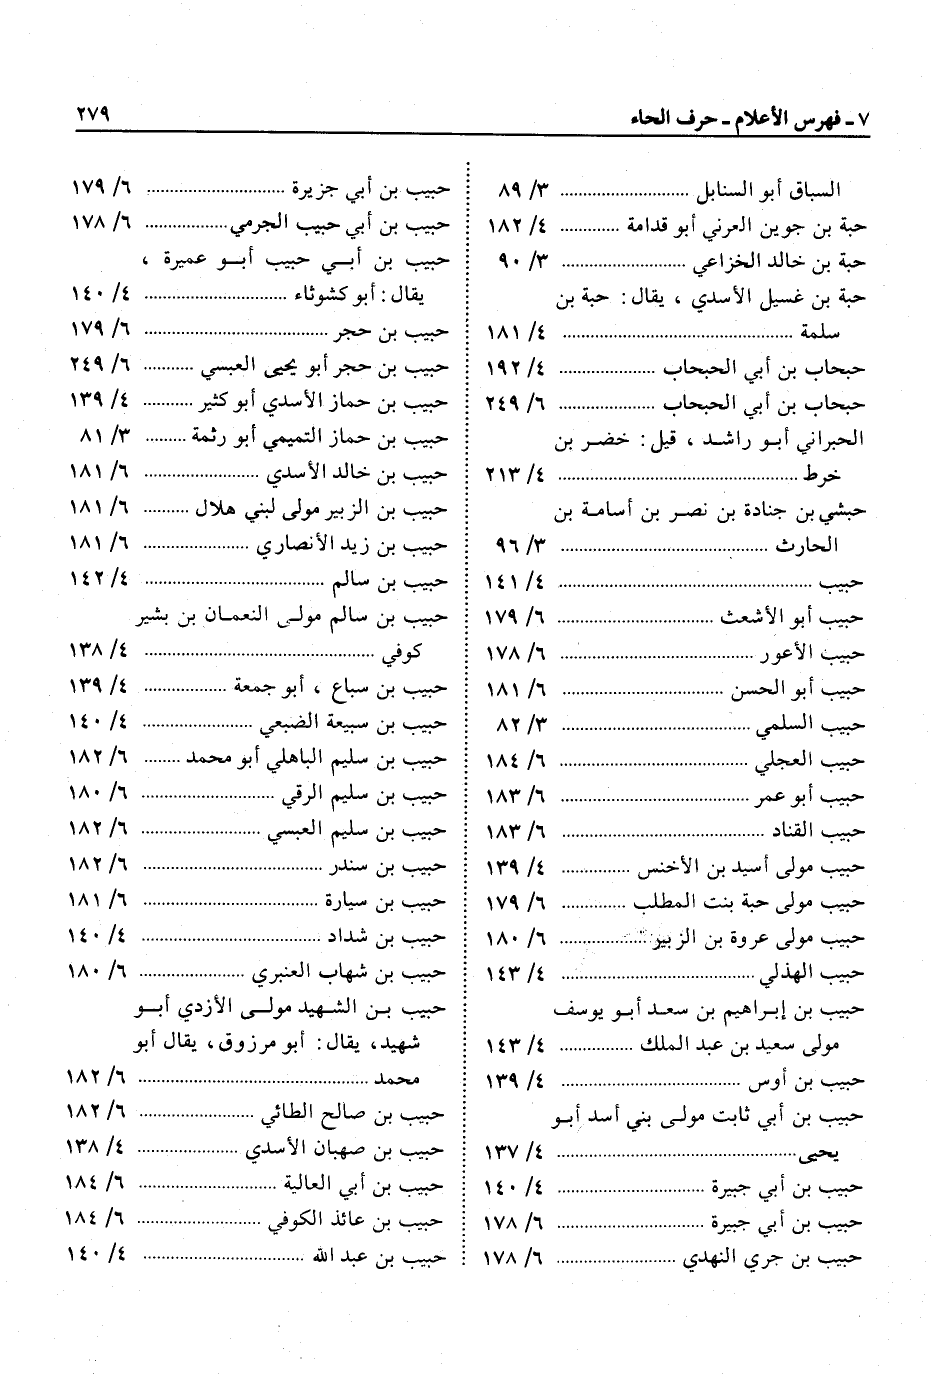 ٧ - فهرس الأعلام - حرف الحاء
٢٧٩
السباق أبو السنابل ............................ ٣/ ٨٩
حبة بن جوين العرني أبو قدامة ............. ٤/ ١٨٢
حبة بن خالد الخزاعي ........................... ٣/ ٩٠
حبة بن غسيل الأسدي ، يقال : حبة بن
سلمة .................................................. ٤/ ١٨١
حبحاب بن أبي الحبحاب ..................... ٤/ ١٩٢
حبحاب بن أبي الحبحاب ..................... ٦/ ٢٤٩
الحبراني أبـو راشـد ، قيل : خضـر بن
خرط .................................................. ٤/ ٢١٣
حبشي بن جنادة بن نصـر بن أسامـة بن
الحارث ............................................. ٣/ ٩٦
حبيب ....................................................... ٤/ ١٤١
حبيب أبو الأشعث .................................. ٦/ ١٧٩
حبيب الأعور .......................................... ٦/ ١٧٨
حبيب أبو الحسن ................................... ٦/ ١٨١
حبيب السلمي ......................................... ٣/ ٨٢
حبيب العجلي ......................................... ٦/ ١٨٤
حبيب أبو عمر ......................................... ٦/ ١٨٣
حبيب القناد ............................................ ٦/ ١٨٣
حبيب مولى أسيد بن الأخنس ............... ٤/ ١٣٩
حبيب مولى حبة بنت المطلب .............. ٦/ ١٧٩
حبيب مولى عروة بن الزبير .................. ٦/ ١٨٠
حبيب الهذلي .......................................... ٤/ ١٤٣
حبيب بن إبـراهيم بن سعـد أبـو يوسف
مولى سعيد بن عبد الملك ................ ٤/ ١٤٣
حبيب بن أوس ....................................... ٤/ ١٣٩
حبيب بن أبي ثابت مولـى بني أسد أبـو
يحيى.................................................... ٤/ ١٣٧
حبيب بن أبي جبيرة ................................ ٤/ ١٤٠
حبيب بن أبي جبيرة ................................ ٦/ ١٧٨
حبيب بن جري النهدي .......................... ٦/ ١٧٨
حبيب بن أبي جزيرة .............................. ٦/ ١٧٩
حبيب بن أبي حبيب الجرمي.................. ٦/ ١٧٨
حبيب بن أبـي حبيب أبـو عميرة ،
يقال : أبو كشوثاء ............................... ٤/ ١٤٠
حبيب بن حجر ........................................ ٦/ ١٧٩
حبيب بن حجر أبو يحيى العبسي ........... ٦/ ٢٤٩
حبيب بن حماز الأسدي أبو كثير ........... ٤/ ١٣٩
حبيب بن حماز التميمي أبو رئمة ......... ٣/ ٨١
حبيب بن خالد الأسدي ......................... ٦/ ١٨١
حبيب بن الزبير مولى لبني هلال .......... ٦/ ١٨١
حبيب بن زيد الأنصاري ....................... ٦/ ١٨١
حبيب بن سالم ....................................... ٤/ ١٤٢
حبيب بن سالم مولـى النعمـان بن بشير
كوفي .................................................. ٤/ ١٣٨
حبيب بن سباع ، أبو جمعة .................. ٤/ ١٣٩
حبيب بن سبيعة الضبعي ........................ ٤/ ١٤٠
حبيب بن سليم الباهلي أبو محمد ........ ٦/ ١٨٢
حبيب بن سليم الرقي ............................. ٦/ ١٨٠
حبيب بن سليم العبسي .......................... ٦/ ١٨٢
حبيب بن سندر ....................................... ٦/ ١٨٢
حبيب بن سيارة ...................................... ٦/ ١٨١
حبيب بن شداد ....................................... ٤/ ١٤٠
حبيب بن شهاب العنبري ....................... ٦/ ١٨٠
حبيب بـن الشهيد مولـى الأزدي أبـو
شهيد، يقال : أبو مرزوق ، يقال أبو
محمد .................................................. ٦/ ١٨٢
حبيب بن صالح الطائي ......................... ٦/ ١٨٢
حبيب بن صهبان الأسدي ...................... ٤/ ١٣٨
حبيب بن أبي العالية .............................. ٦/ ١٨٤
حبيب بن عائذ الكوفي ........................... ٦/ ١٨٤
حبيب بن عبد الله ................................... ٤/ ١٤٠